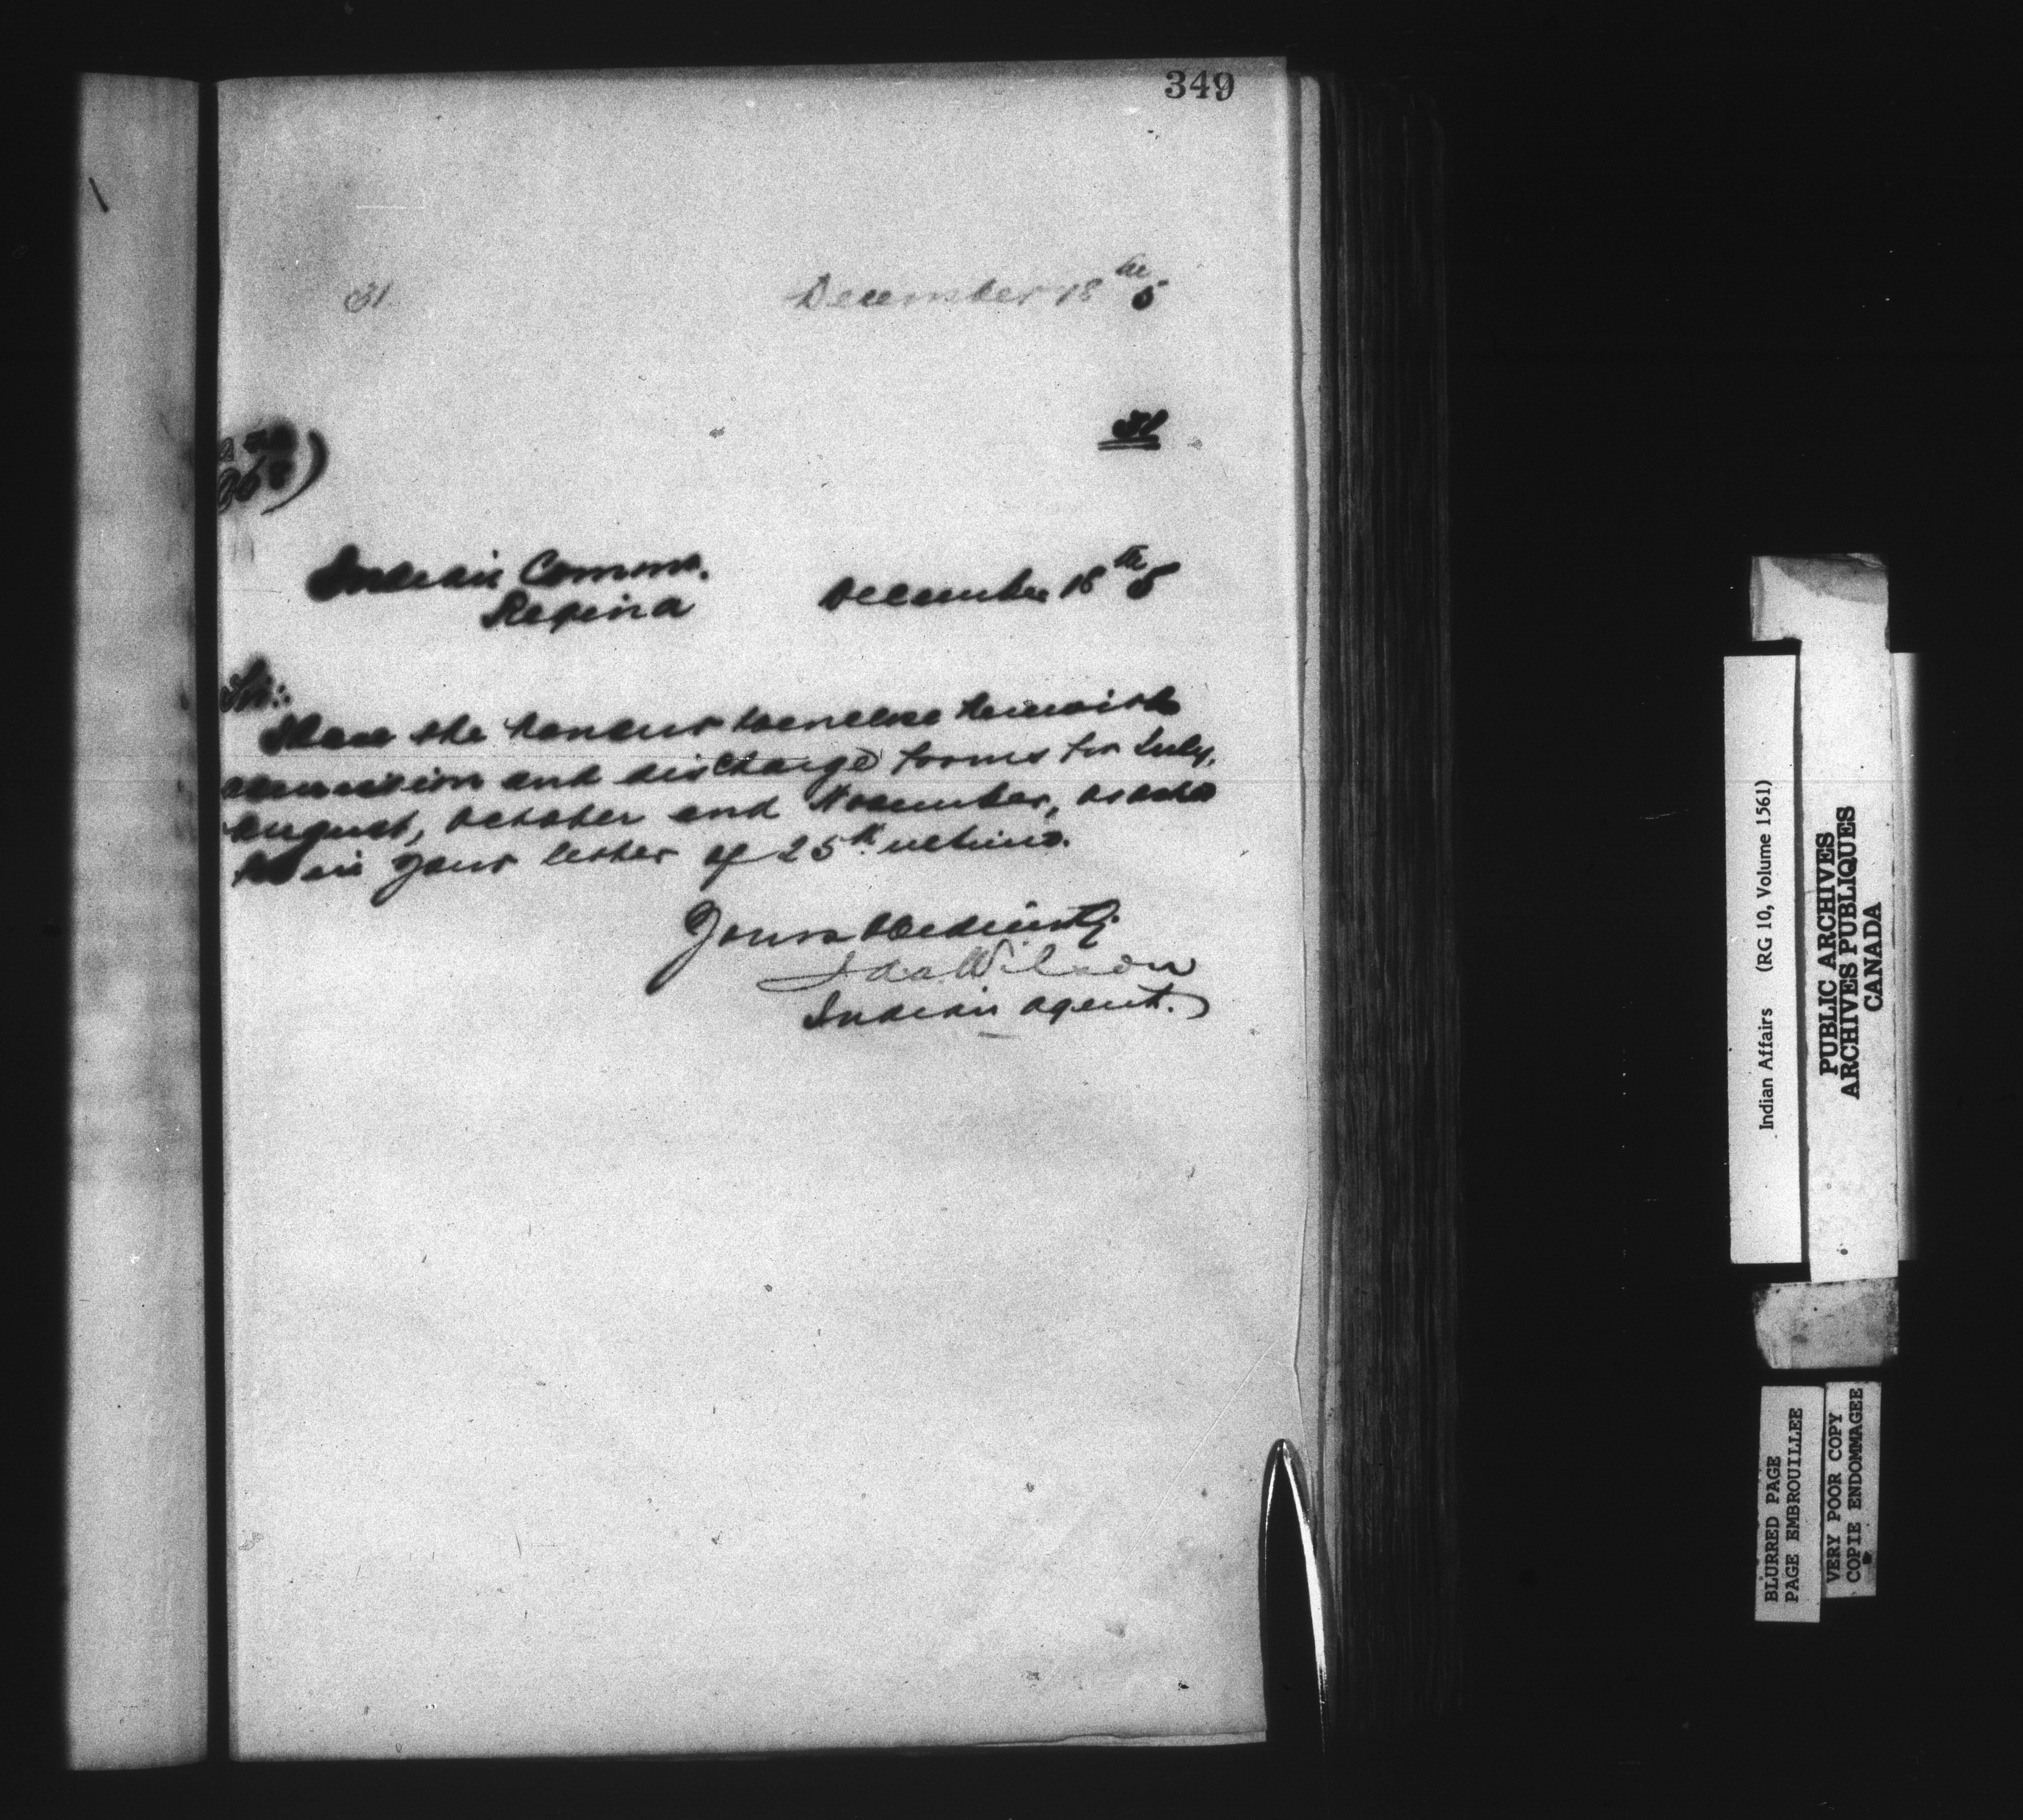 349
31
December 18th 5
31
Indian Comm.
Regina
December 18th 5
Sir:
I have the honour to enclose herewith
admission and discharge forms for July,
August, October and November, as asked
for in your letter of 25th ultimo.
Yours obediently
Jas. Wilson
Indian Agent.
Indian Affairs (RG 10, Volume 1561)
PUBLIC ARCHIVES
ARCHIVES PUBLIQUES
CANADA
BLURRED PAGE
PAGE EMBROUILLEE
VERY POOR COPY
COPIE ENDOMMAGEE